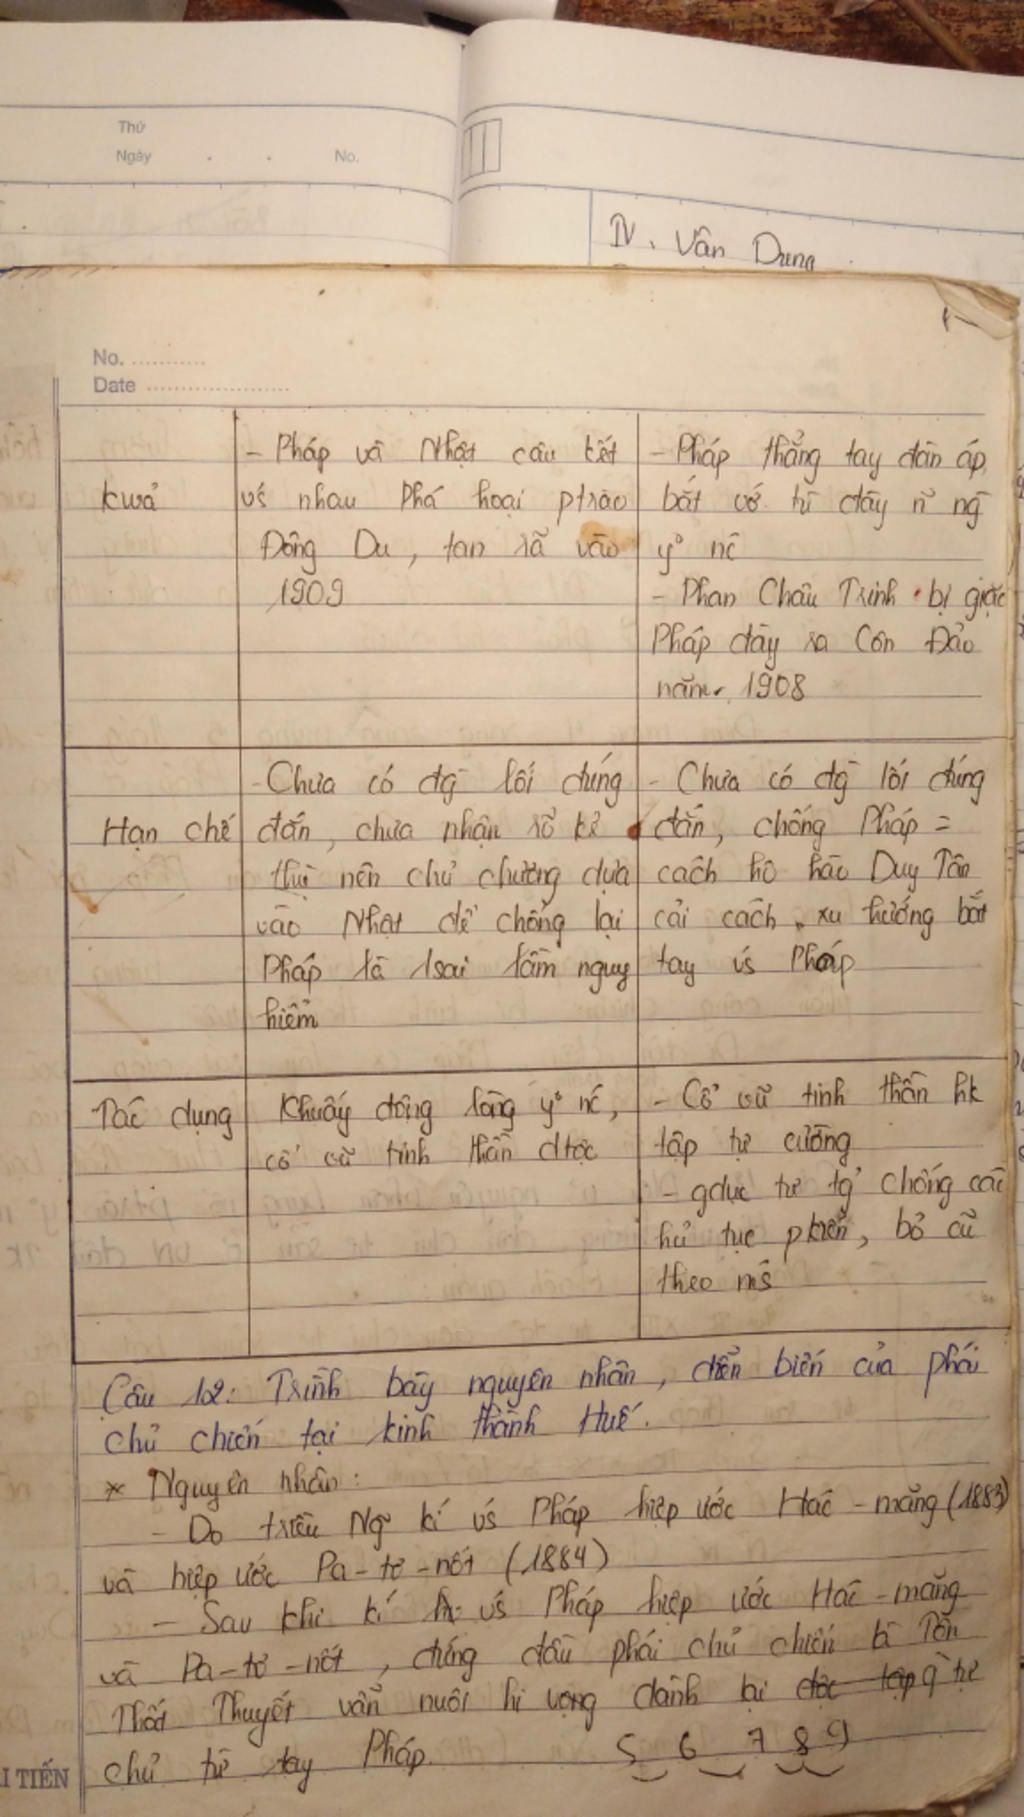 Thứ
Ngày . . No.
IV. Vận Dụng
No. ...........
Date .....................
kquả
- Pháp và Nhật câu kết
vs nhau phá hoại ptrào
Đông Du, tan rã vào
1909
- Pháp thẳng tay đàn áp
bắt vớ tù đày n~ ng~
y° nc
- Phan Châu Trinh bị giặc
Pháp đày ra Côn Đảo
năm 1908
Hạn chế
- Chưa có đg~ lối đúng
đắn, chưa nhận rõ kẻ
thù nên chủ chương dựa
vào Nhật để chống lại
Pháp là 1 sai lầm nguy
hiểm
- Chưa có đg~ lối đúng
đắn, chống Pháp =
cách hô hào Duy Tân
cải cách, xu hướng bắt
tay vs Pháp
Tác dụng
Khuấy động lòng y° nc,
cổ vũ tinh thần dtộc
- Cổ vũ tinh thần hk
tập tự cường
- gdục tư tg' chống các
hủ tục pkiến, bỏ cũ
theo ms
Câu 12: Trình bày nguyên nhân, diễn biến của phái
chủ chiến tại kinh thành Huế.
* Nguyên nhân:
- Do triều Ng~ kí vs Pháp hiệp ước Hác-măng (1883)
và hiệp ước Pa-tơ-nốt (1884)
- Sau khi kí vs Pháp hiệp ước Hác-măng
và Pa-tơ-nốt, đứng đầu phái chủ chiến là Tôn
Thất Thuyết vẫn nuôi hi vọng dành lại độc lập q` tự
chủ từ tay Pháp.
5 6 7 8 9
I TIẾN